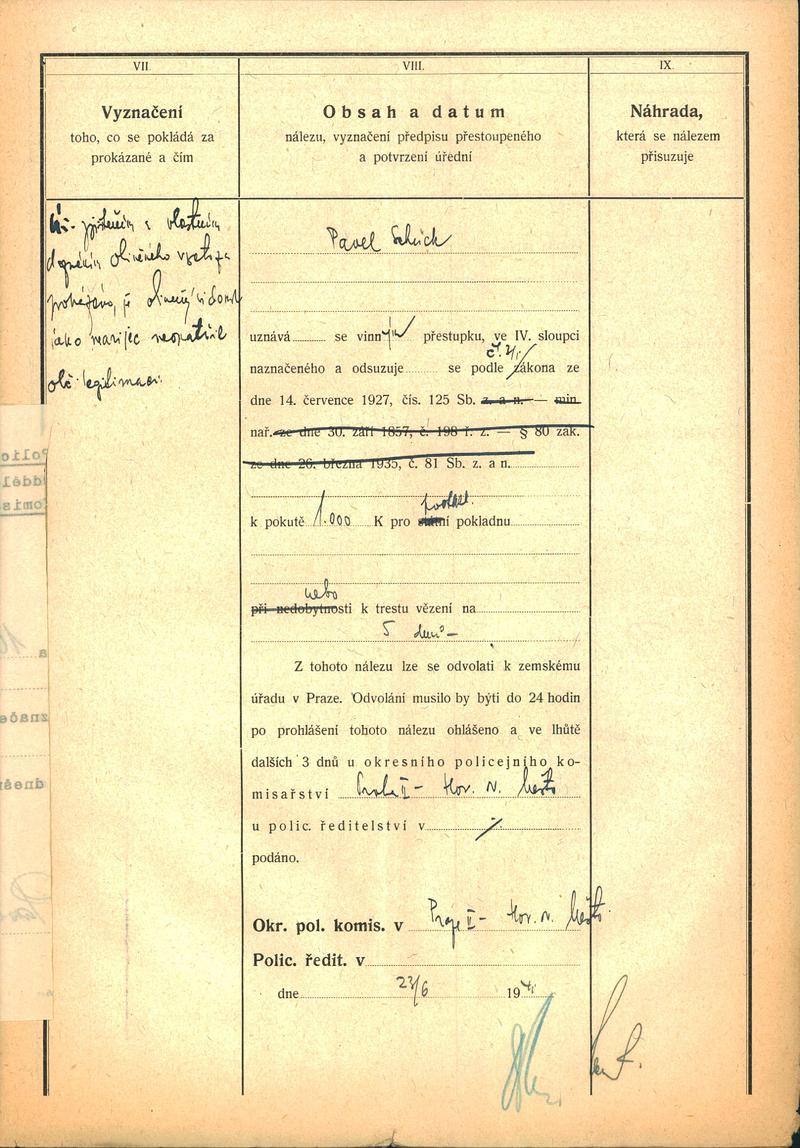 VII.
Vyznačení
toho, co se pokládá za
prokázané a čím
VIII.
Obsah a datum
nálezu, vyznačení předpisu přestoupeného
a potvrzení úřední
IX.
Náhrada,
která se nálezem
přisuzuje
zjištěním a vlastním
doznáním obviněného vzato za
prokázáno, že obviněný
jako neopatřil
obč. legitimaci.
Pavel Schick
uznává se vinným přestupku, ve IV. sloupci
č. 2/
naznačeného a odsuzuje se podle zákona ze
dne 14. července 1927, čís. 125 Sb. z. a n. — min.
nař. ze dne 30. září 1857, č. 198 ř. z. — § 80 zák.
ze dne 26. března 1935, č. 81 Sb. z. a n.
k pokutě 1.000 K pro státní pokladnu
nebo
při nedobytnosti k trestu vězení na
5 dnů –
Z tohoto nálezu lze se odvolati k zemskému
úřadu v Praze. Odvolání musilo by býti do 24 hodin
po prohlášení tohoto nálezu ohlášeno a ve lhůtě
dalších 3 dnů u okresního policejního ko-
misařství Praha II – Hor. N. Město
u polic. ředitelství v
podáno.
Okr. pol. komis. v Praze II – Hor. N. Město
Polic. ředit. v
dne 23/6 1941